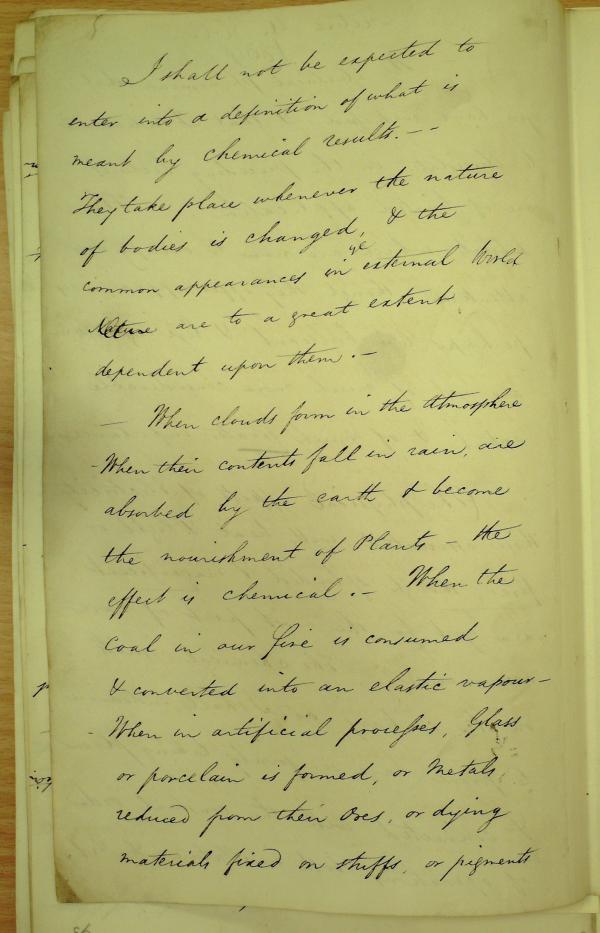 I shall not be expected to
enter into a definition of what is
meant by chemical results. - -
They take place whenever the nature
of bodies is changed, & the
common appearances in ye external World
Nature are to a great extent
dependent upon them. -
- When clouds form in the Atmosphere
- When their contents fall in rain, are
absorbed by the earth & become
the nourishment of Plants - the
effect is chemical. - When the
coal in our fire is consumed
& converted into an elastic vapour -
- When in artificial processes, Glass
or porcelain is formed, or Metals
reduced from their Ores, or dying
materials fixed on stuffs, or pigments